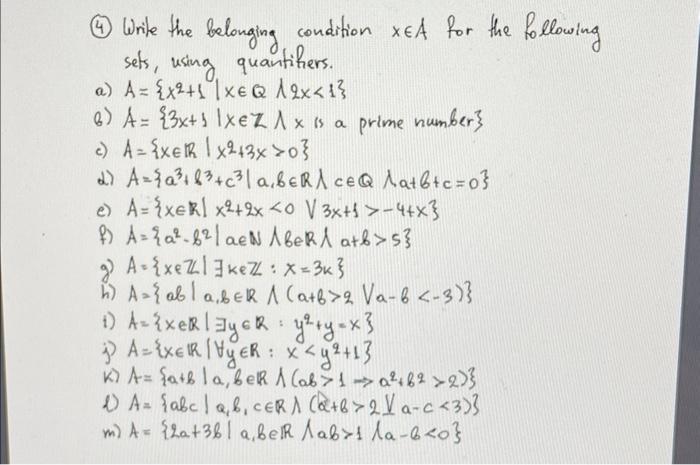 ④ Write the belonging condition x∈A for the following
sets, using quantifiers.
a) A = {x²+1 | x∈Q ∧ 2x<1}
b) A = {3x+1 | x∈Z ∧ x is a prime number}
c) A = {x∈R | x²+3x>0}
d) A = {a³+b³+c³ | a,b∈R ∧ c∈Q ∧ a+b+c=0}
e) A = {x∈R | x²+2x<0 ∨ 3x+1>-4+x}
f) A = {a²-b² | a∈N ∧ b∈R ∧ a+b>5}
g) A = {x∈Z | ∃k∈Z : x=3k}
h) A = {ab | a,b∈R ∧ (a+b>2 ∨ a-b<-3)}
i) A = {x∈R | ∃y∈R : y²+y=x}
j) A = {x∈R | ∀y∈R : x<y²+1}
k) A = {a+b | a,b∈R ∧ (ab>1 ⇒ a²+b²>2)}
l) A = {abc | a,b,c∈R ∧ (a+b>2 ⊻ a-c<3)}
m) A = {2a+3b | a,b∈R ∧ ab>1 ∧ a-b<0}